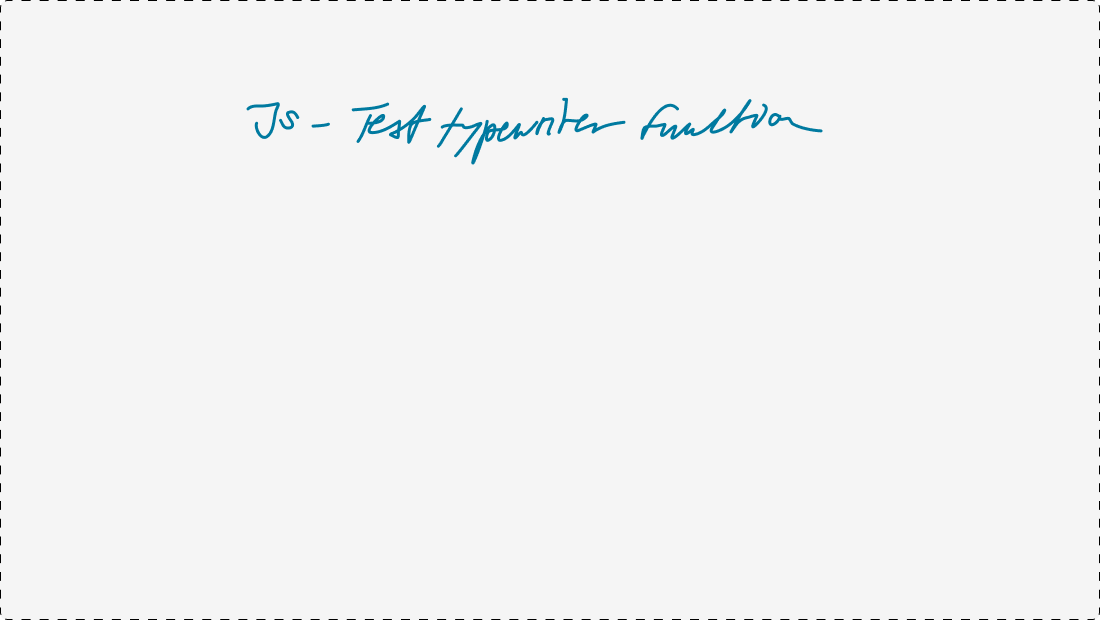 JS - Test typewriter function